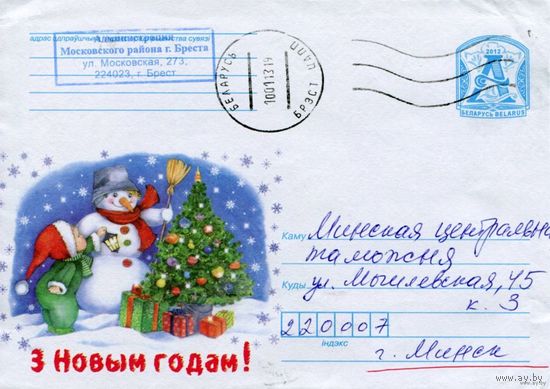 адрас адпраўшчыка
сувязі
Администрация
Московского района г. Бреста
ул. Московская, 273,
224023, г. Брест
БЕЛАРУСЬ
10 01 13 19
БРЭСТ
2012
А
БЕЛАРУСЬ BELARUS
Каму Минская центральная
таможня
Куды ул. Могилевская, 45
к. 3
220007
індэкс
г. Минск
З Новым годам!
www.ay.by